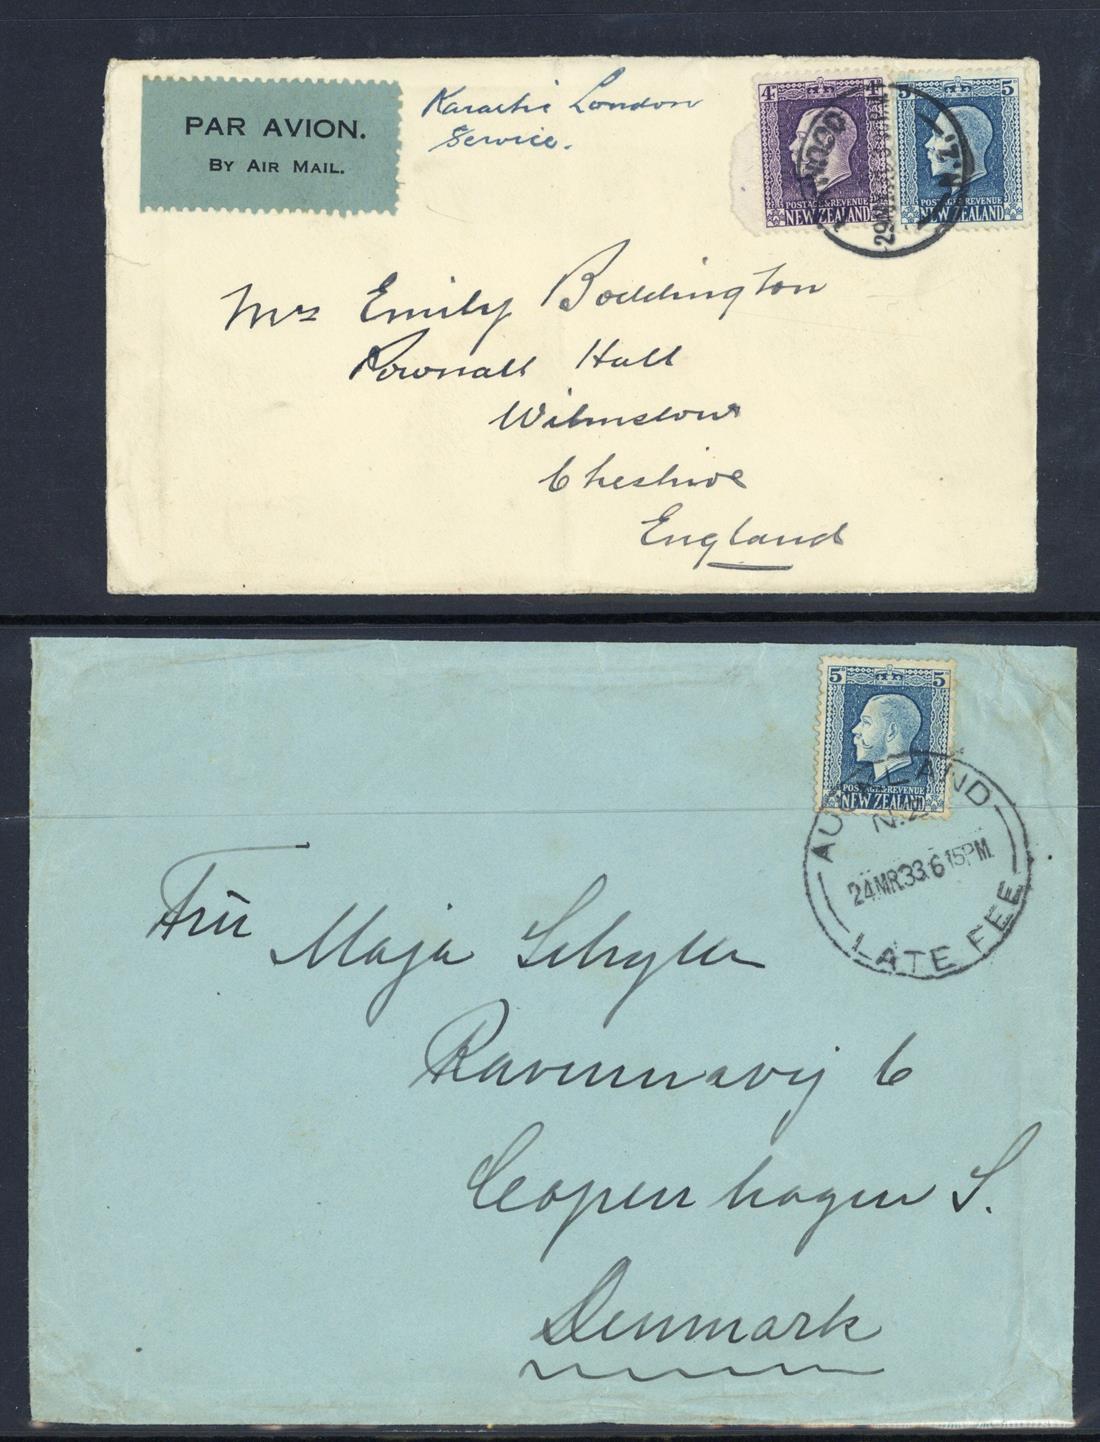 PAR AVION.
BY AIR MAIL.
Karachi London
Service.
4d 4d
POSTAGE & REVENUE
NEW ZEALAND
5d 5d
POSTAGE & REVENUE
NEW ZEALAND
N.Z.
Mrs Emily Boddington
Pownall Hall
Wilmslow
Cheshire
England
5d 5d
POSTAGE & REVENUE
NEW ZEALAND
AUCKLAND
N.Z.
24 MR.33. 6 15 PM.
LATE FEE
Frū
Maja
Ravnnavej 6
Copenhagen S.
Denmark